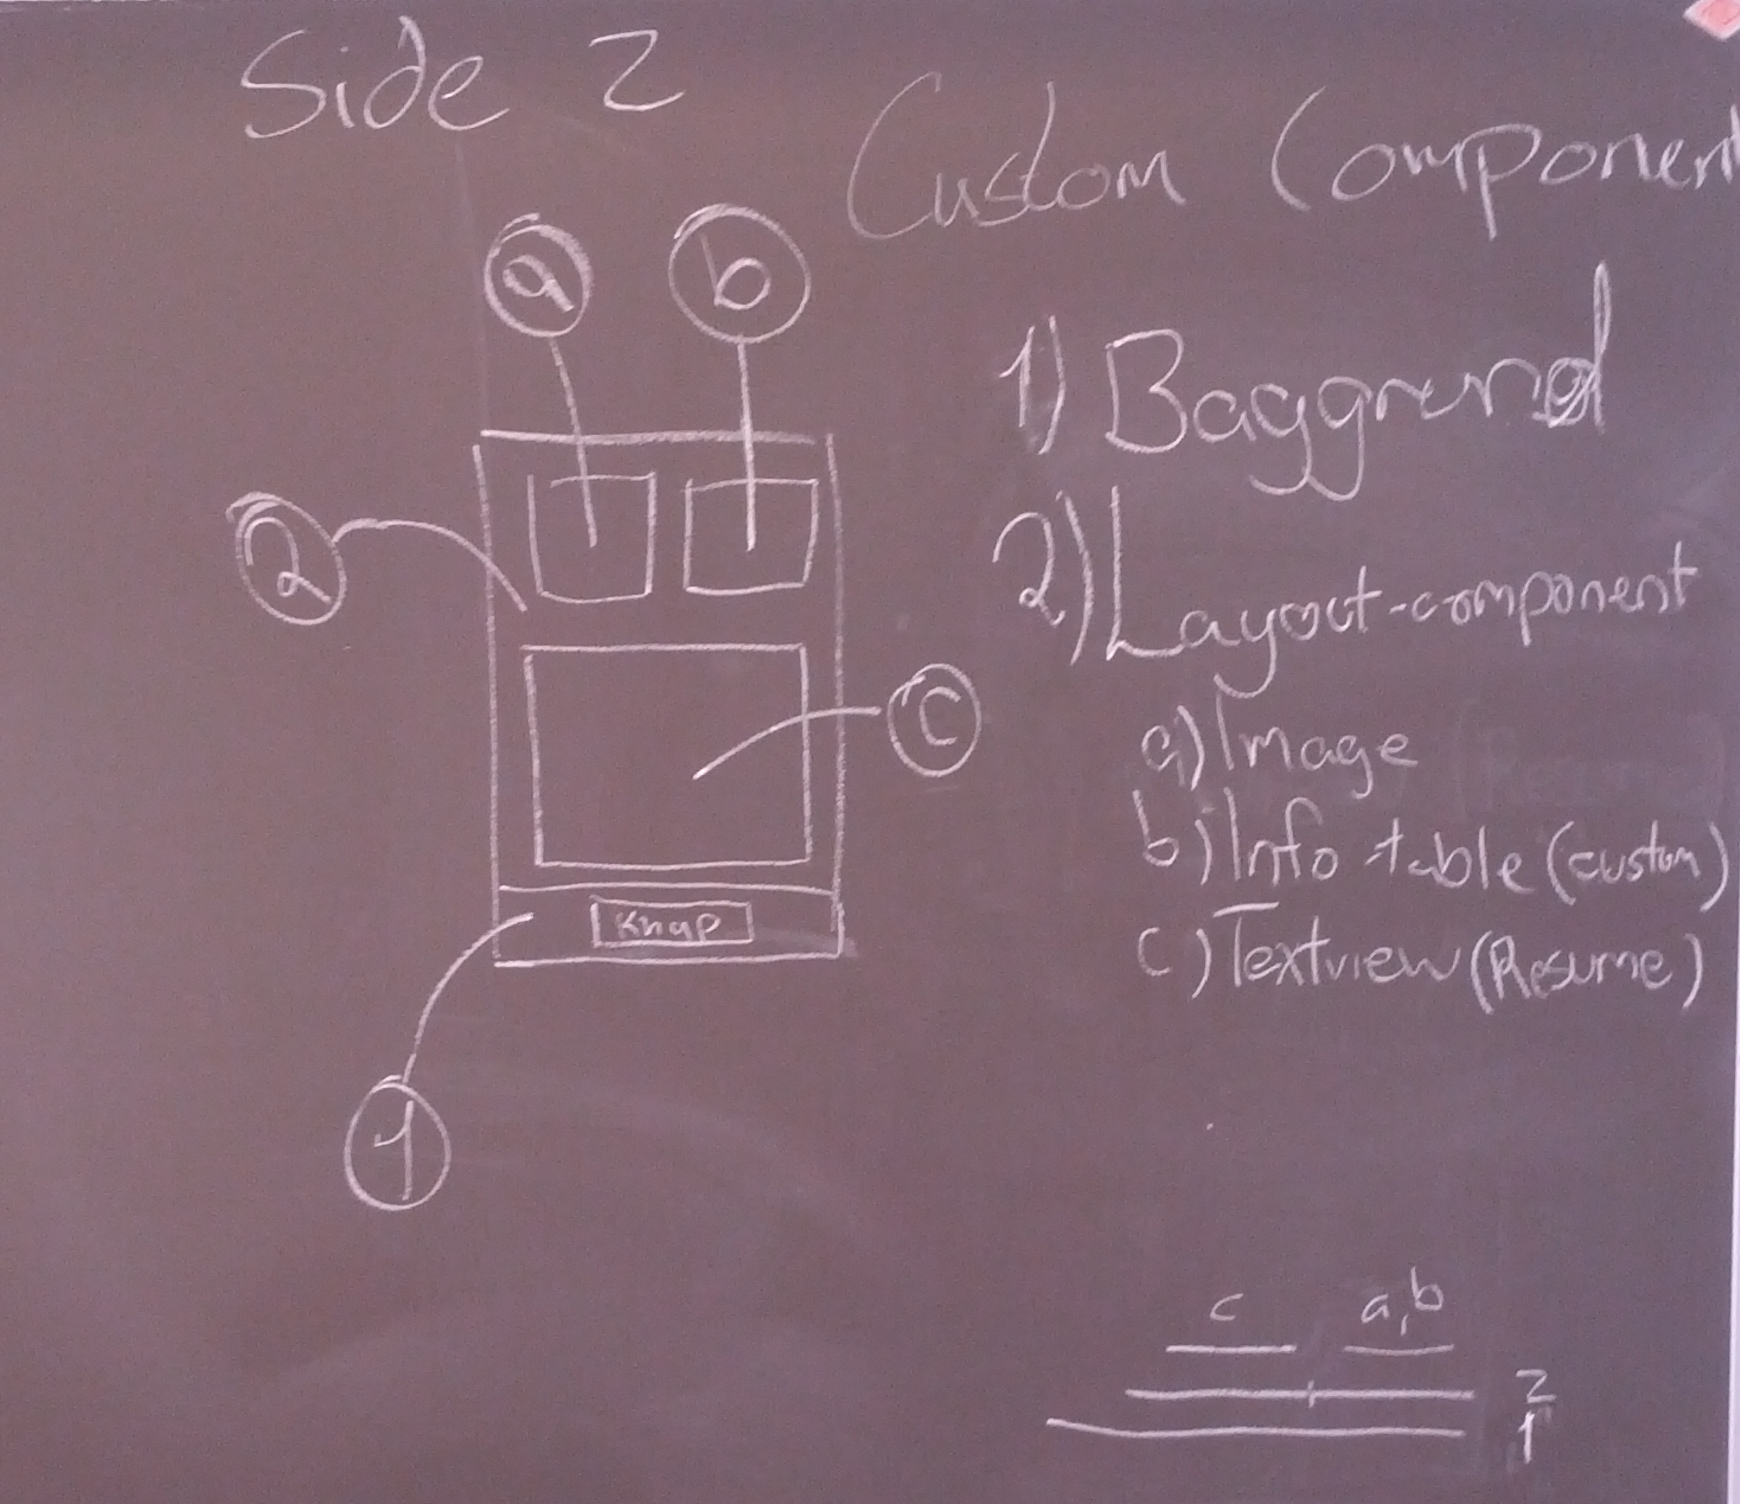 Side 2
Custom Component
a
b
1) Baggrund
2
2) Layout-component
c
a) Image
b) Info-table (custom)
c) Textview (Resume)
Knap
1
c a,b
2
1